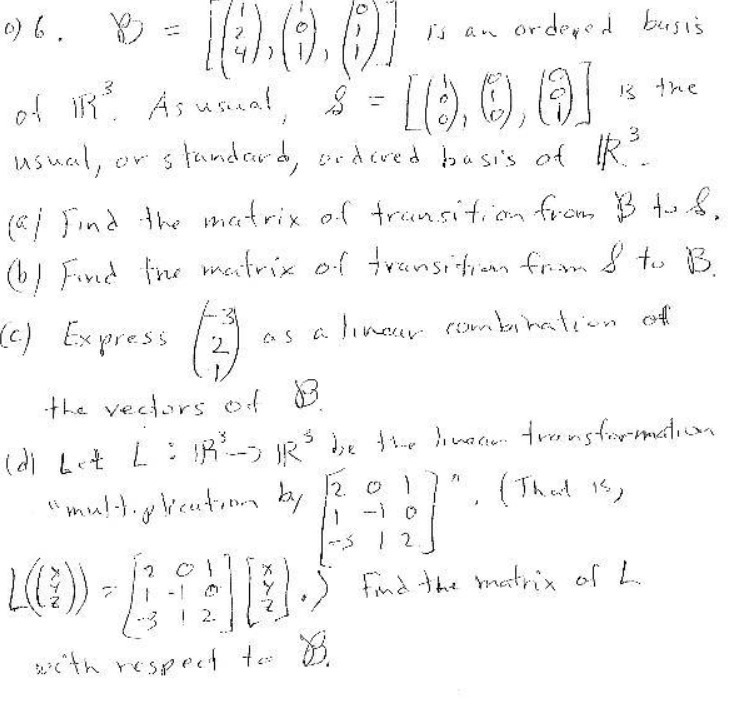 0) 6. B = [(1 2 4), (1 0 1), (0 1 1)] is an ordered basis
of ℝ³. As usual, S = [(1 0 0), (0 1 0), (0 0 1)] is the
usual, or standard, ordered basis of ℝ³.
(a) Find the matrix of transition from B to S.
(b) Find the matrix of transition from S to B.
(c) Express (-3 2 1) as a linear combination of
the vectors of B.
(d) Let L : ℝ³ → ℝ³ be the linear transformation
"multiplication by [2 0 1; 1 -1 0; -3 1 2]". (That is,
L((x y z)) = [2 0 1; 1 -1 0; -3 1 2] [x y z].) Find the matrix of L
with respect to B.